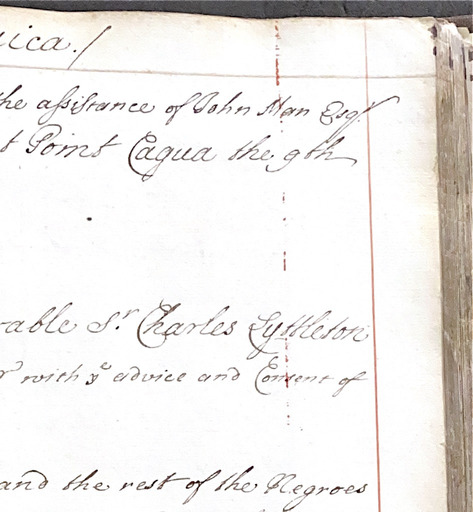 ica./
the assistance of John Man Esqr.
t Point Cagua the 9th
able Sr. Charles Lyttleton
r with ye advice and Consent of
and the rest of the Negroes